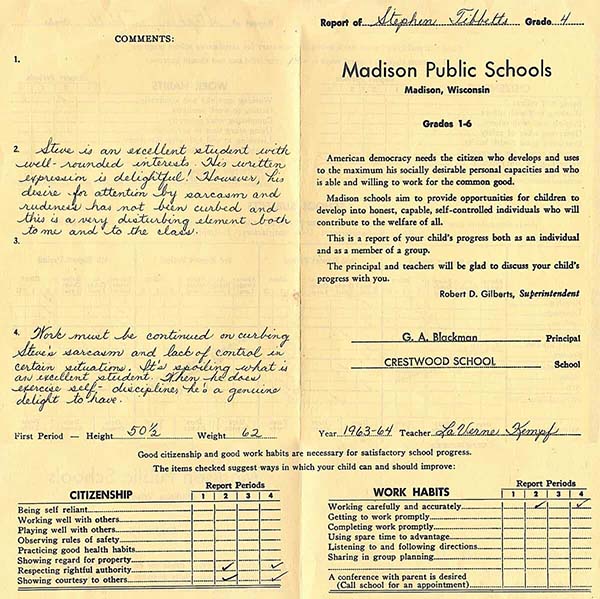 COMMENTS:
1.
2. Steve is an excellent student with
well-rounded interests. His written
expression is delightful! However, his
desire for attention by sarcasm and
rudeness has not been curbed and
this is a very disturbing element both
to me and to the class.
3.
4. Work must be continued on curbing
Steve's sarcasm and lack of control in
certain situations. It's spoiling what is
an excellent student. When he does
exercise self-discipline, he's a genuine
delight to have.
First Period — Height 50½ Weight 62
Report of Stephen Tibbetts Grade 4
Madison Public Schools
Madison, Wisconsin
Grades 1-6
American democracy needs the citizen who develops and uses
to the maximum his socially desirable personal capacities and who
is able and willing to work for the common good.
Madison schools aim to provide opportunities for children to
develop into honest, capable, self-controlled individuals who will
contribute to the welfare of all.
This is a report of your child's progress both as an individual
and as a member of a group.
The principal and teachers will be glad to discuss your child's
progress with you.
Robert D. Gilberts, Superintendent
G. A. Blackman Principal
CRESTWOOD SCHOOL School
Year 1963-64 Teacher LaVerne Kempf
Good citizenship and good work habits are necessary for satisfactory school progress.
The items checked suggest ways in which your child can and should improve:
CITIZENSHIP Report Periods
1 2 3 4
Being self reliant
Working well with others
Playing well with others
Observing rules of safety
Practicing good health habits
Showing regard for property
Respecting rightful authority ✓ ✓
Showing courtesy to others ✓ ✓
WORK HABITS Report Periods
1 2 3 4
Working carefully and accurately ✓ ✓
Getting to work promptly
Completing work promptly
Using spare time to advantage
Listening to and following directions
Sharing in group planning
A conference with parent is desired
(Call school for an appointment)